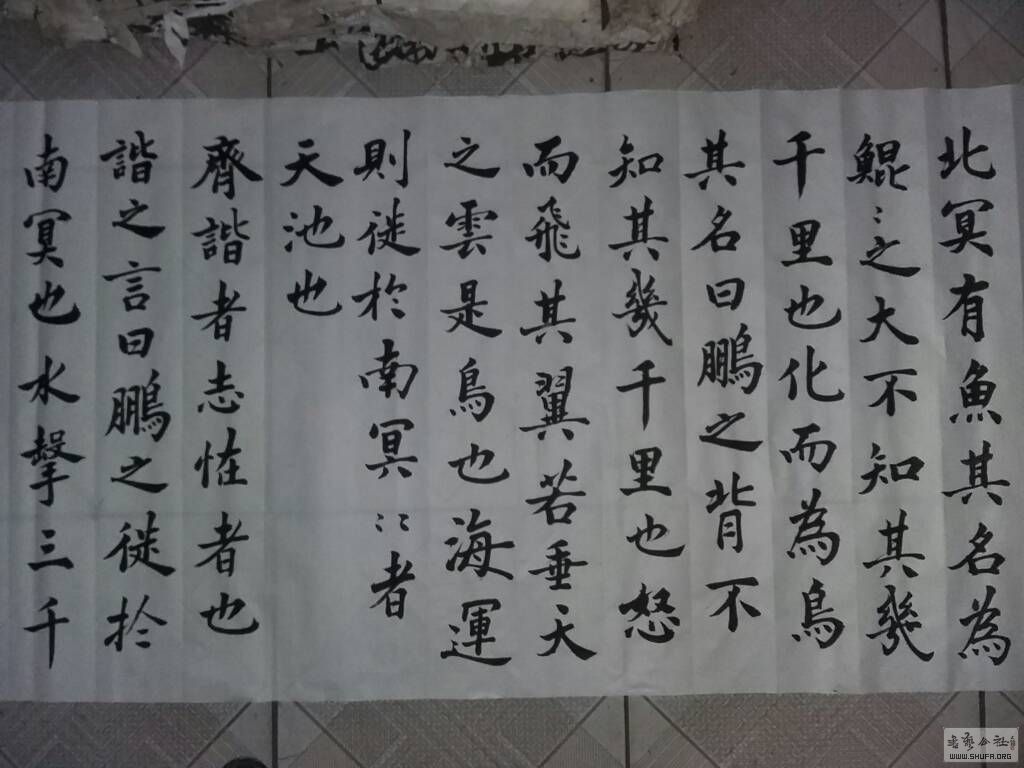 北冥有魚其名為
鯤〻之大不知其幾
千里也化而為鳥
其名曰鵬之背不
知其幾千里也怒
而飛其翼若垂天
之雲是鳥也海運
則徙於南冥〻者
天池也
齊諧者志恠者也
諧之言曰鵬之徙於
南冥也水擊三千
WWW.SHUFA.ORG